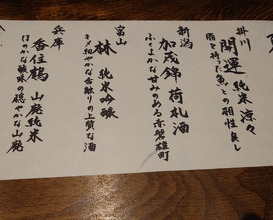 掛川
開運 純米 涼々
脂を持た魚との相性良し
新潟
加茂錦 荷札酒
ふくよかな甘みのある赤磐雄町
富山
林 純米吟醸
キメ細やかな舌触りの上質な酒
兵庫
香住鶴 山廃純米
ほのかな酸味の穏やかな山廃